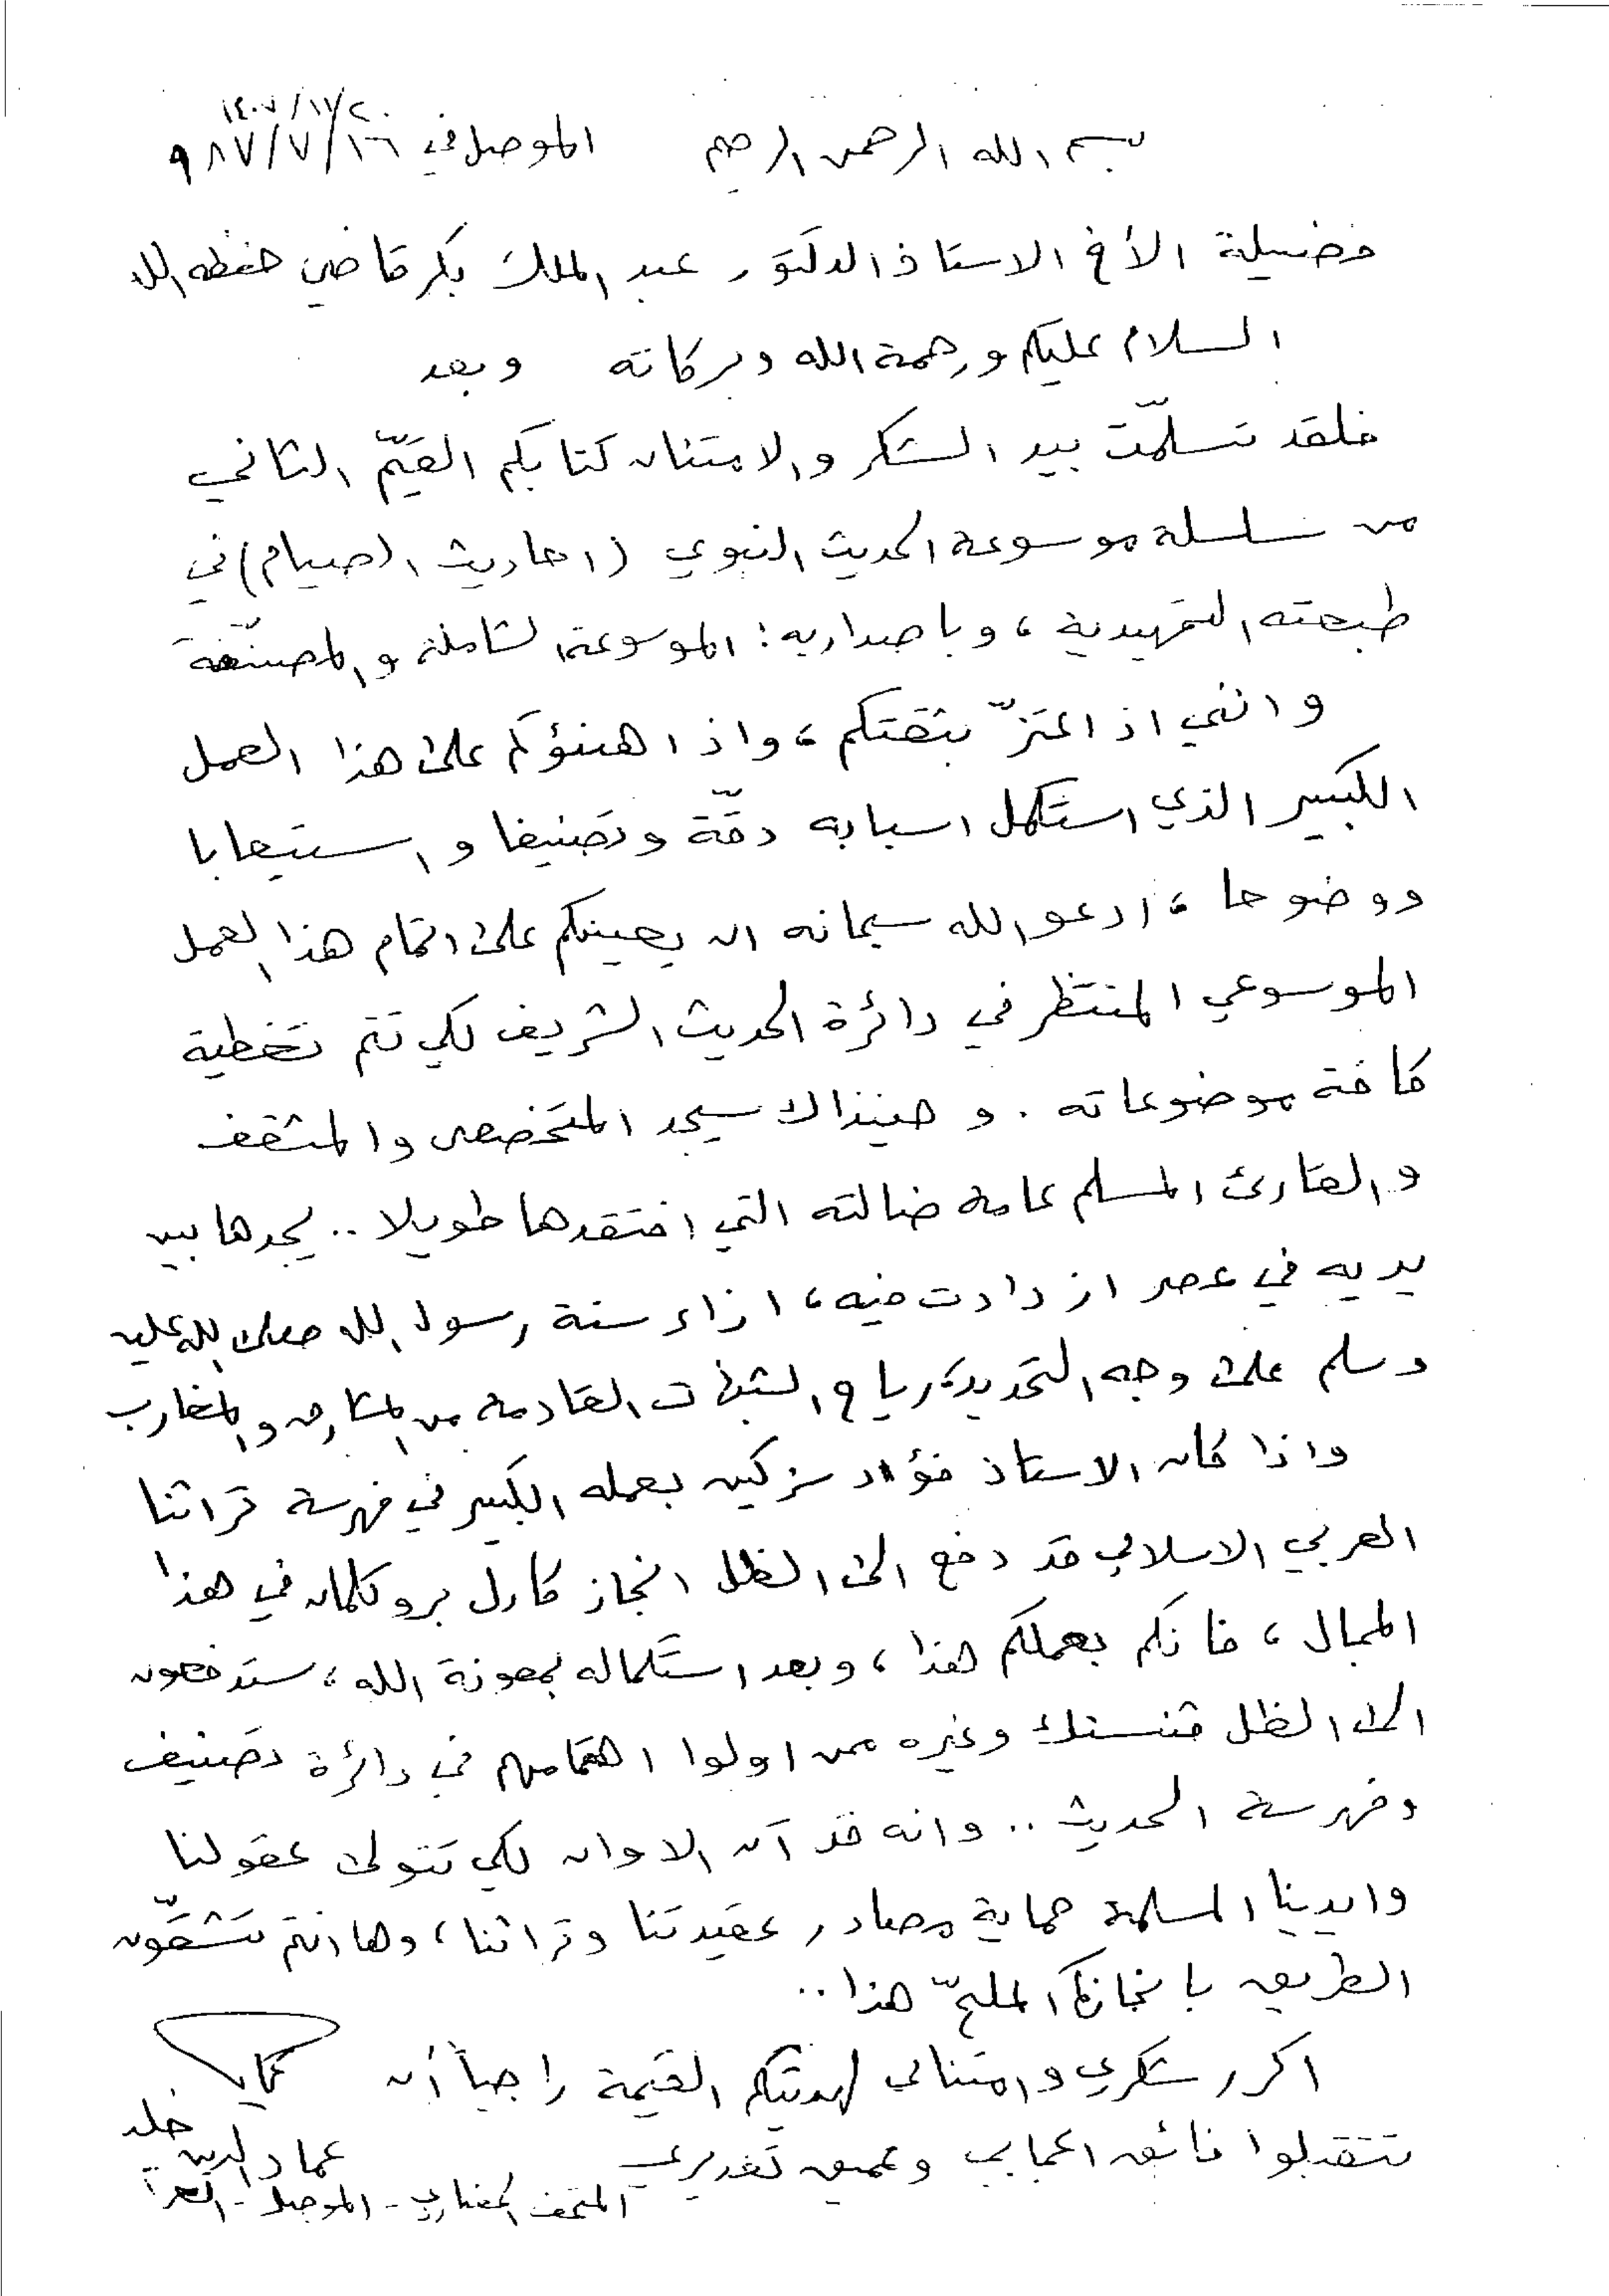 ١٤٠٧/١١/٢٠
بسم الله الرحمن الرحيم الموصل في ٩٨٧/٧/١٦
فضيلة الأخ الاستاذ الدكتور عبد الملك بكر قاضي حفظه الله
السلام عليكم ورحمة الله وبركاته وبعد
فلقد تسلمّت بيد الشكر والامتنان كتابكم القيّم الثاني
من سلسلة موسوعة الحديث النبوي (احاديث الصيام) في
طبعته التمهيدية، وباصداريه: الموسوعة الشاملة والمصنّفة
وانني اذ اعتزّ بثقتكم، واذ اهنؤكم على هذا العمل
الكبير الذي استكمل اسبابه دقّة وتصنيفا واستيعابا
ووضوحا، ادعو الله سبحانه ان يعينكم على اتمام هذا العمل
الموسوعي المنتظر في دائرة الحديث الشريف لكي تتم تغطية
كافة موضوعاته. وحينذاك سيجد المتخصص والمثقف
والقارئ المسلم عامة ضالته التي افتقدها طويلا.. يجدها بين
يديه في عصر ازدادت فيه، ازاء سنة رسول الله صلى الله عليه
وسلم على وجه التحديد، رياح الشبهات القادمة من المشارق والمغارب
واذا كان الاستاذ فؤاد سزكين بعمله الكبير في فهرسة تراثنا
العربي الاسلامي قد دفع الى الظل انجاز كارل بروكلمان في هذا
المجال، فانكم بعملكم هذا، وبعد استكماله بمعونة الله، ستدفعون
الى الظل فنسنك وغيره ممن اولوا اهتمامهم في دائرة تصنيف
وفهرسة الحديث.. وانه قد آن الاوان لكي تتولى عقولنا
وايدينا المسلمة حماية مصادر عقيدتنا وتراثنا، وها انتم تشقّون
الطريق بانجازكم الملحّ هذا..
اكرر شكري وامتناني لهديتكم القيمة راجياً أن
تتقبلوا فائق اعجابي وعميق تقديري
عماد الدين خليل
المتحف الحضاري - الموصل - العراق